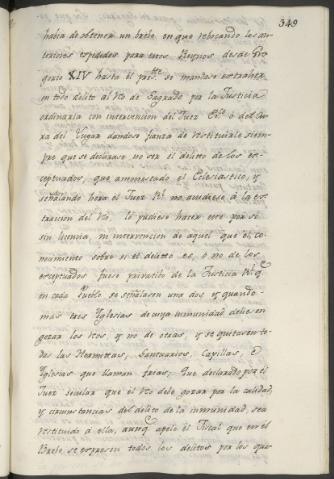 349
havia de obtener un breve, en que rebocando los an-
teriores expedidos para estos Reynos desde Gre-
gorio XIV hasta el pres.te se mandase extraher
en todo delito al Reo de Sagrado por la Justicia
ordinaria con intervencion del Juez Ec.co ó del Cu-
ra del Lugar dandose fianza de restituirle siem-
pre que se declarase no ser el delito de los ex-
ceptuados, que amonestado el Eclesiastico, y
señalando hora el Juez R.l no acudiese á la ex-
traccion del Reo, lo pudiese hacer este por si
sin licencia, ni intervencion de aquel que el co-
nocimiento sobre si el delito es, ó no de los
exceptuados fuese privativo de la Justicia R.l q.e
en cada Pueblo se señalasen una dos, y quando
mas tres Iglesias de cuya inmunidad deben
gozar los Reos, y no de otras, y se quitasen to-
das las Hermitas, Santuarios, Capillas, é
Iglesias que llaman frias; Que declarado por el
Juez secular que el Reo debe gozar por la calidad,
y circunstancias del delito de la inmunidad, sea
restituido á ella, aunq.e apele el Fiscal que en el
Breve se expresen todos los delitos por los que